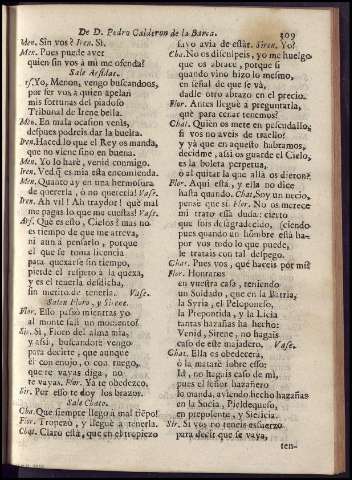 De D. Pedro Calderon de la Barca.
309
Men. Sin vos? Iren. Si.
Men. Pues puede aver
quien sin vos à mi me ofenda?
Sale Arsidas.
Arf. Yo, Menon, vengo buscandoos,
por ser vos à quien apelan
mis fortunas del piadoso
Tribunal de Irene bella.
Men. En mala ocasion venis,
despues podreis dar la buelta.
Iren. Haced lo que el Rey os manda,
que no viene sino en buena.
Men. Yo lo harè, venid conmigo.
Iren. Ved q̃ es mia esta encomienda.
Men. Quanto ay en una hermosura
de quererla, ò no quererla! Vase.
Iren. Ah vil! Ah traydor! què mal
me pagas lo que me cuestas! Vase.
Arf. Què es esto, Cielos? mas no
es tiempo de que me atreva,
ni aun à pensarlo, porque
el que se toma licencia
para quexarse sin tiempo,
pierde el respeto à la quexa,
y es el tenerla desdicha,
sin merito de tenerla. Vase.
Salen Floro, y Sirene.
Flor. Ello passò mientras yo
al monte fui un momento?
Sir. Si, Floro del alma mia,
y assi, buscandote vengo
para decirte, que aunque
èl con enojo, ò con ruego,
que te vayas diga, no
te vayas. Flor. Yà te obedezco.
Sir. Por esso te doy los brazos.
Sale Chato.
Cha. Que siempre llego à mal tiẽpo!
Flor. Tropezò, y lleguè à tenerla.
Chat. Claro està, que en el tropiezo
suyo avia de estàr. Siren. Yo?
Chat. No os disculpeis, yo me huelgo
que os abrace, porque si
quando vino hizo lo mesmo,
en señal de que se và,
dadle otro abrazo en el precio.
Flor. Antes lleguè à preguntarla,
què para cenar tenemos?
Chat. Quien os mete en pescudallo,
si vos no aveis de traello?
y yà que en aquesto habramos,
decidme, assi os guarde el Cielo,
es la boleta perpetua,
ò al quitar la que allà os dieron?
Flor. Aqui està, y ella no dice
hasta quando. Chat. Soy un necio,
pensè que si. Flor. No os merece
mi trato essà duda: cierto
que sois desagradecido, siendo
pues quando un hombre està ha-
por vos todo lo que puede,
le tratais con tal despego.
Chat. Pues vos, què haceis por mi?
Flor. Honraros
en vuestra casa, teniendo
un Soldado, que en la Batria,
la Syria, el Peloponeso,
la Prepontida, y la Licia
tantas hazañas ha hecho:
Venid, Sirene, no hagais
caso de este majadero. Vase.
Chat. Ella os obedecerà,
ò la matarè sobre esso;
Id, no hagais caso de mi,
pues el señor hazañero
lo manda, aviendo hecho hazañas
en la Socia, Pieldequeso,
en preposente, y Sicilicia.
Sir. Si vos no teneis esfuerzo
para decir que se vaya,
ten-